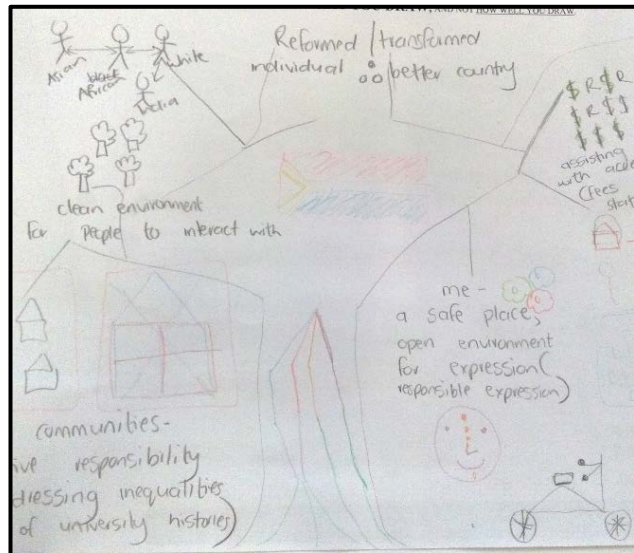 YOU DRAW, AND NOT HOW WELL YOU DRAW.
Asian
black
African
white
India
Reformed / transformed
individual ∴ better country
$ R $ R
$ R $ $
$ $ $
assisting
with acade
(Fees
clean environment
for people to interact with
me -
a safe place,
open environment
for expression (
responsible expression)
communities -
ive responsibility
dressing inequalities
of university histories)